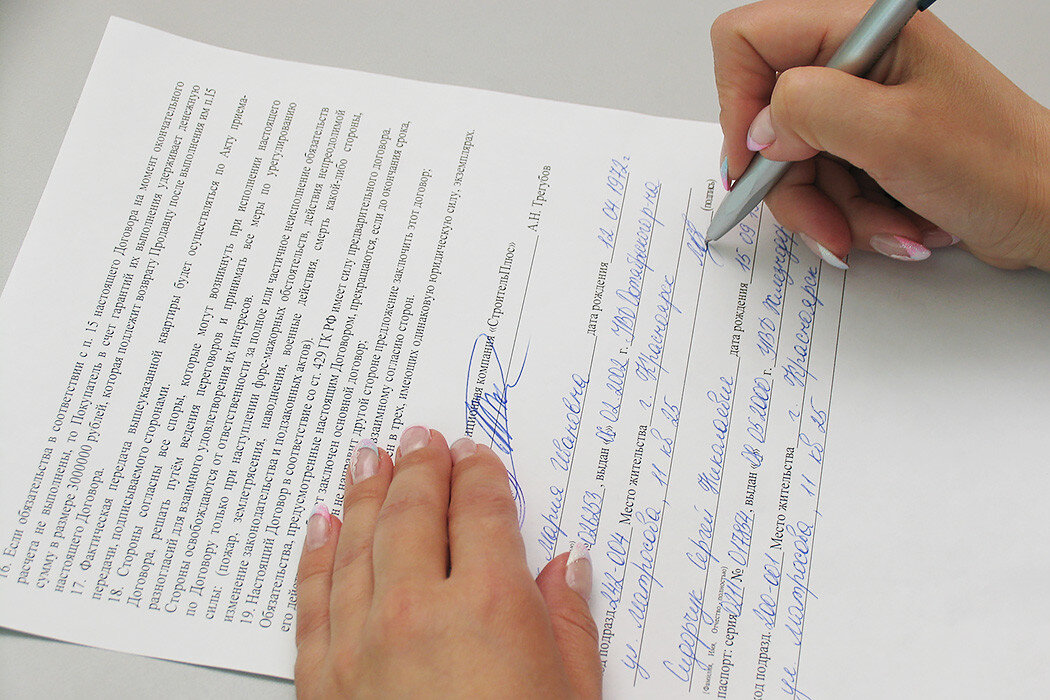 16. Если обязательства в соответствии с п. 15 настоящего Договора на момент окончательного
расчета не выполнены, то Покупатель в счет гарантий их выполнения удерживает денежную
сумму в размере 3000000 рублей, которая подлежит возврату Продавцу после выполнения им п.15
настоящего Договора.
17. Фактическая передача вышеуказанной квартиры будет осуществляться по Акту приема-
передачи, подписываемого сторонами.
18. Стороны согласны все споры, которые могут возникнуть при исполнении настоящего
Договора, решать путём ведения переговоров и принимать все меры по урегулированию
разногласий для взаимного удовлетворения их интересов.
Стороны освобождаются от ответственности за полное или частичное неисполнение обязательств
по Договору только при наступлении форс-мажорных обстоятельств, действия непреодолимой
силы: (пожар, землетрясения, наводнения, военные действия, смерть какой-либо стороны,
изменение законодательства и подзаконных актов).
19. Настоящий Договор в соответствие со ст. 429 ГК РФ имеет силу предварительного договора.
Обязательства, предусмотренные настоящим Договором, прекращаются, если до окончания срока,
его дей
т заключен основной договор;
не направит другой стороне предложение заключить этот договор;
взаимному согласию сторон.
ен в трех, имеющих одинаковую юридическую силу, экземплярах.
компания «СтроительПлюс»
А.Н. Трегубов
мария Ивановна дата рождения 12 04 1972 г
026253, выдан «18» 02 2002 г. УВД Октябрьского р-на
од подразд. 242-004 Место жительства г. Красноярск
ул матросова, 11 кв 25
(подпись)
Сидорчук Сергей Николаевич дата рождения 15 09
(Фамилия, Имя, Отчество полностью)
паспорт: серия 0211 № 017884, выдан «28» 05 2000 г. УВД
од подразд. 200-001 Место жительства г. Красноярск
ул матросова, 11 кв 25